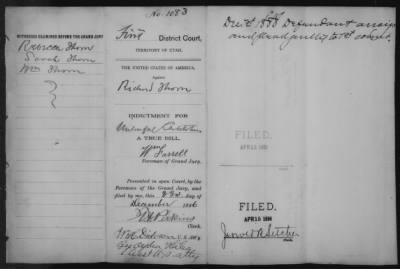 No. 1083
WITNESSES EXAMINED BEFORE THE GRAND JURY
Rebecca Thorn
Sarah Thorn
Wm Thorn
First
District Court,
TERRITORY OF UTAH.
THE UNITED STATES OF AMERICA,
Against
Richard Thorn
INDICTMENT FOR
Unlawful Cohabitation
A TRUE BILL.
Wm Farrell
Foreman of Grand Jury.
Presented in open Court, by the
Foreman of the Grand Jury, and
filed by me, this
day of
December 1886
H. Perkins
Clerk.
W. H. Dickson U. S. Att'y
Dec
Defendant
and pleads guilty to 1st count.
FILED.
APR 15
FILED.
APR 15
Clerk.